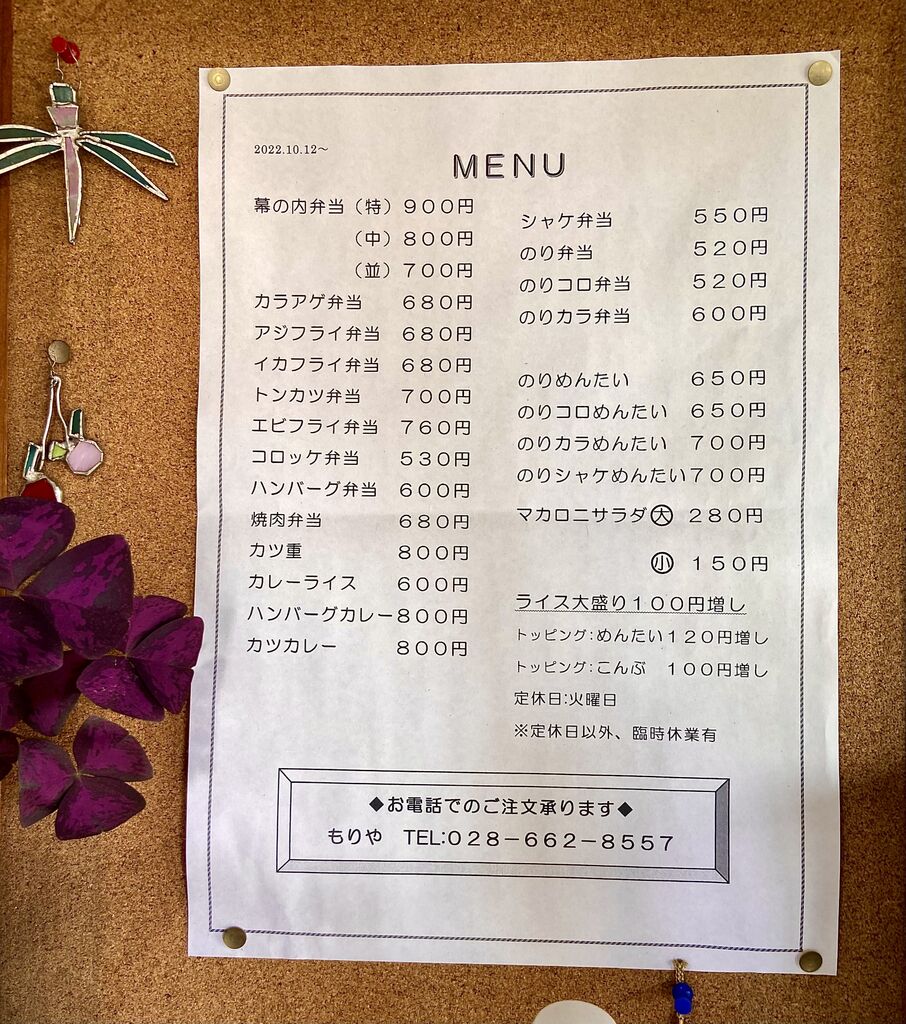 2022.10.12～
MENU
幕の内弁当（特）９００円
（中）８００円
（並）７００円
カラアゲ弁当　６８０円
アジフライ弁当　６８０円
イカフライ弁当　６８０円
トンカツ弁当　７００円
エビフライ弁当　７６０円
コロッケ弁当　５３０円
ハンバーグ弁当　６００円
焼肉弁当　６８０円
カツ重　８００円
カレーライス　６００円
ハンバーグカレー８００円
カツカレー　８００円
シャケ弁当　５５０円
のり弁当　５２０円
のりコロ弁当　５２０円
のりカラ弁当　６００円
のりめんたい　６５０円
のりコロめんたい　６５０円
のりカラめんたい　７００円
のりシャケめんたい７００円
マカロニサラダ㊛大 ２８０円
㊙小 １５０円
ライス大盛り１００円増し
トッピング:めんたい１２０円増し
トッピング:こんぶ　１００円増し
定休日:火曜日
※定休日以外、臨時休業有
◆お電話でのご注文承ります◆
もりや　TEL:０２８－６６２－８５５７